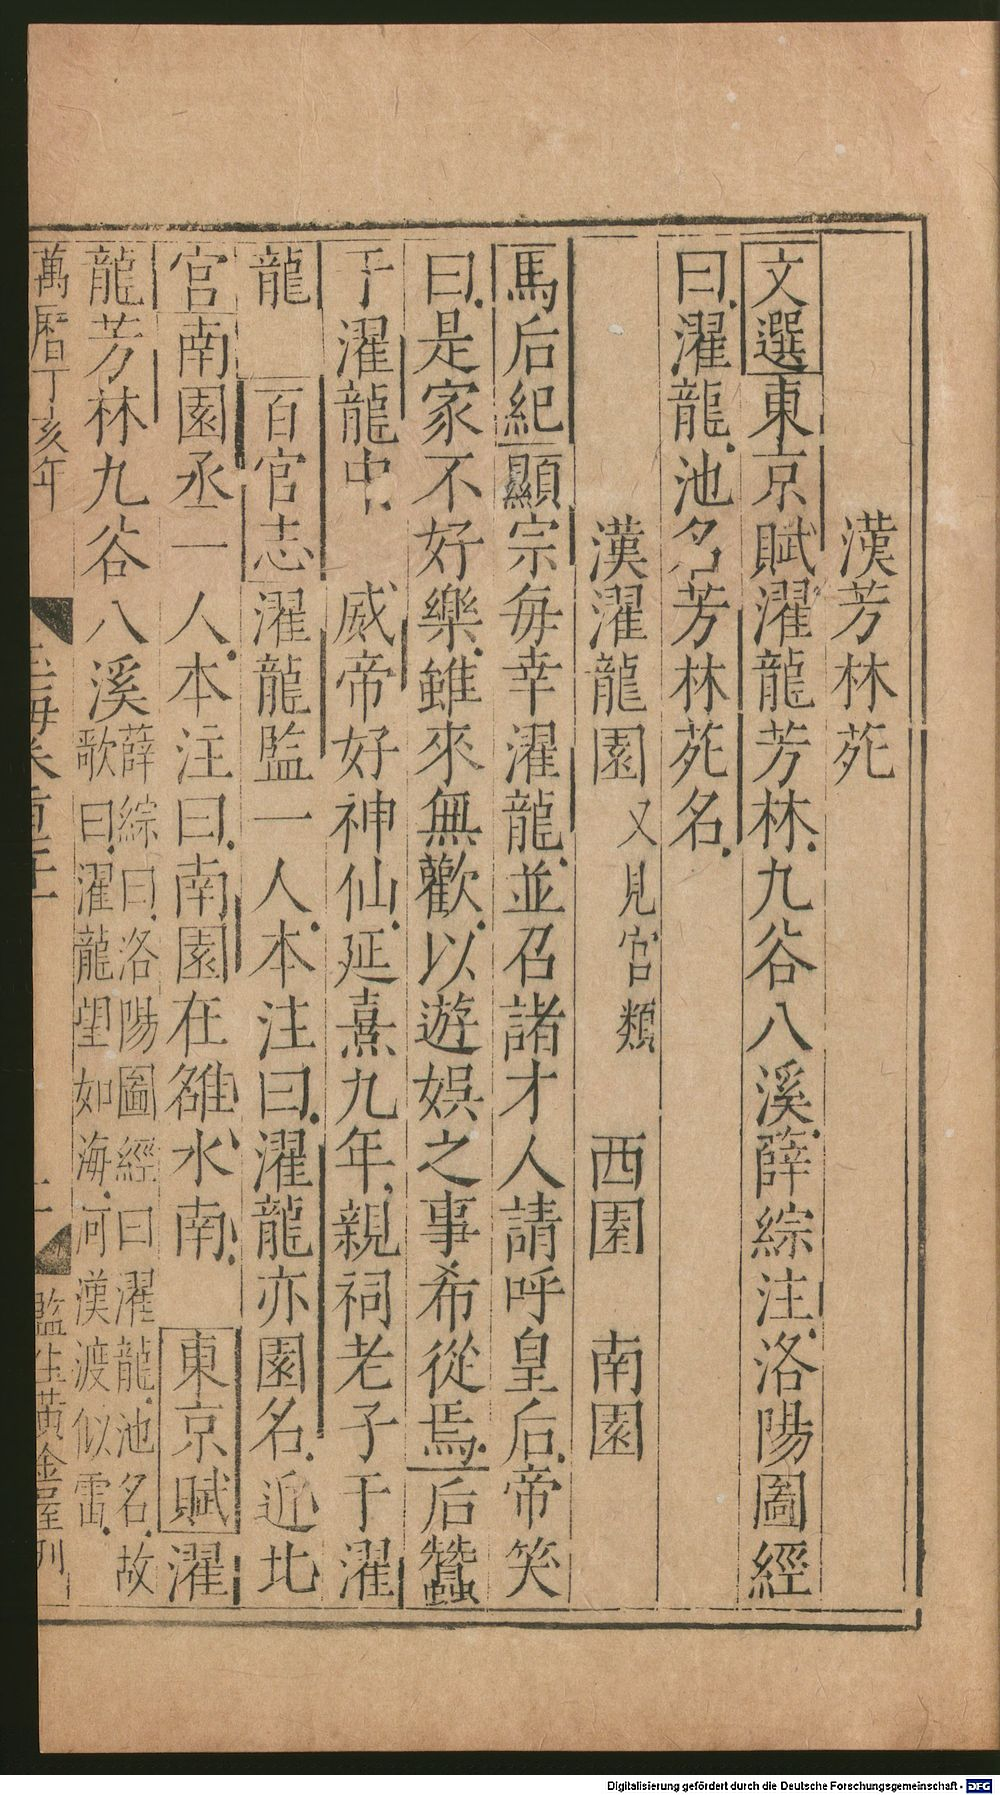 漢芳林苑
文選東京賦濯龍芳林九谷八溪薛綜注洛陽圖經
曰濯龍池名芳林苑名
漢濯龍園又見宮類 西園 南園
馬后紀顯宗每幸濯龍並召諸才人請呼皇后帝笑
曰是家不好樂雖來無歡以遊娛之事希從焉后蠶
于濯龍中 威帝好神仙延熹九年親祠老子于濯
龍 百官志濯龍監一人本注曰濯龍亦園名近北
宮南園丞一人本注曰南園在雒水南 東京賦濯
龍芳林九谷八溪薛綜曰洛陽圖經曰濯龍池名故
歌曰濯龍望如海河漢渡似雷
萬曆丁亥年 監生黃金璽刊
Digitalisierung gefördert durch die Deutsche Forschungsgemeinschaft - DFG